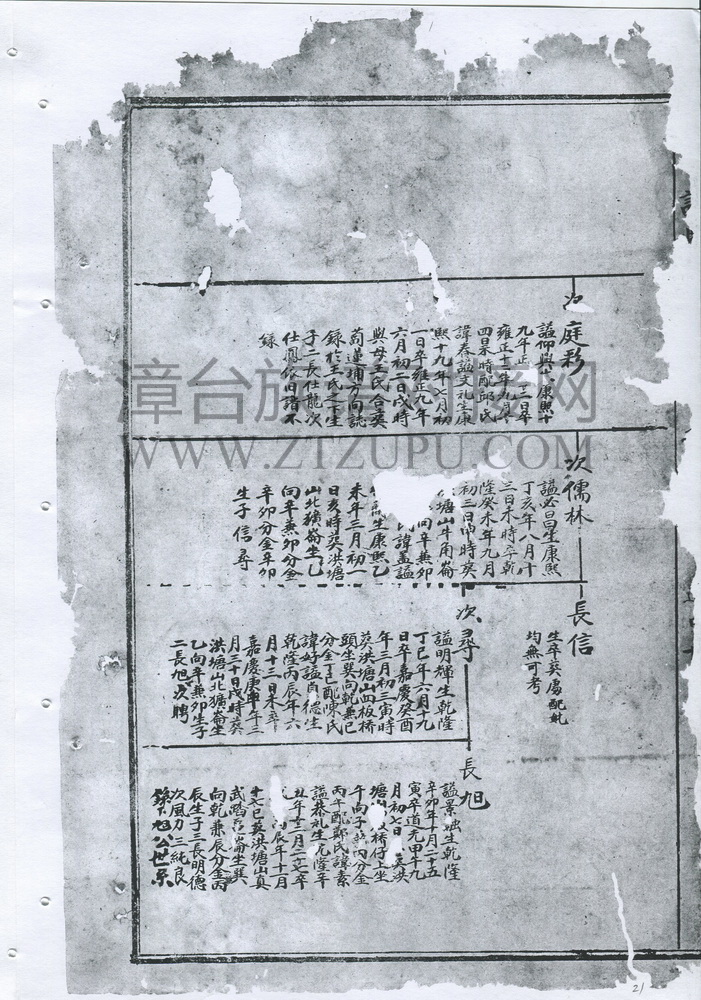 次庭彩
諡仰興生康熙十
九年正 二日卒
雍正十二年九月
四日未時配邱氏
諱春諡文礼生康
熙十九年七月初
一日卒雍正九年
六月初二日戌時
與母王氏合葬
蔔蓮埔方向誌
錄於王氏之
子二長仕龍次
仕鳳依旧譜不
錄
次儒林
諡必昌生康熙
丁亥年八月廿
三日未時卒乾
隆癸未年九月
初三日申時葬
塘山牛角崙
向辛兼卯
氏諱益諡
生康熙乙
未年三月初一
日亥時葬洪塘
山北獷崙坐乙
向辛兼卯分金
辛卯分金辛卯
生子信尋
長信
生卒葬處配氏
均無可考
次尋
諡明輝生乾隆
丁巳年六月十九
日卒嘉慶癸酉
年三月初三寅時
葬洪塘山四板橋
頭坐巽向乾兼巳
分金丁巳配陳氏
諱好諡 德生
乾隆丙辰年六
月十三日未卒
嘉慶庚申年三
月三十日戌時葬
洪塘山北獷崙坐
乙向辛兼卯生子
二長旭次聘
長旭
諡景 生乾隆
辛卯年十月二十五
寅卒道光甲午九
月初七日 葬洪
塘 板橋仔上坐
午向子 丙分金
丙午配鄭氏諱素
諡恭礼生乾隆辛
丑年十二月二十七卒
丙辰年十月
十七巳葬洪塘山真
武踏 崙坐巽
向乾兼辰分金丙
辰生子三長明德
次風力三純良
錄下旭公世系
漳台族譜 網
WWW.ZTZUPU.COM
21